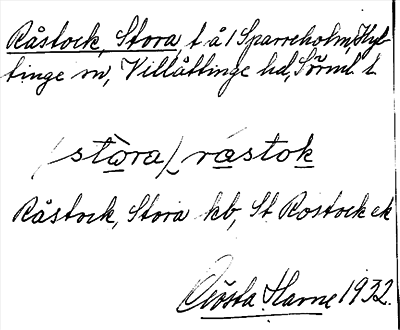 Råstock, Stora, t å 1 Sparreholm, Hyl-
tinge sn, Villåttinge hd, Sörml. l.
(stò̱ra)̮ rastok
Råstock, Stora kb, St Rostock ek
Gösta Harne 1932.